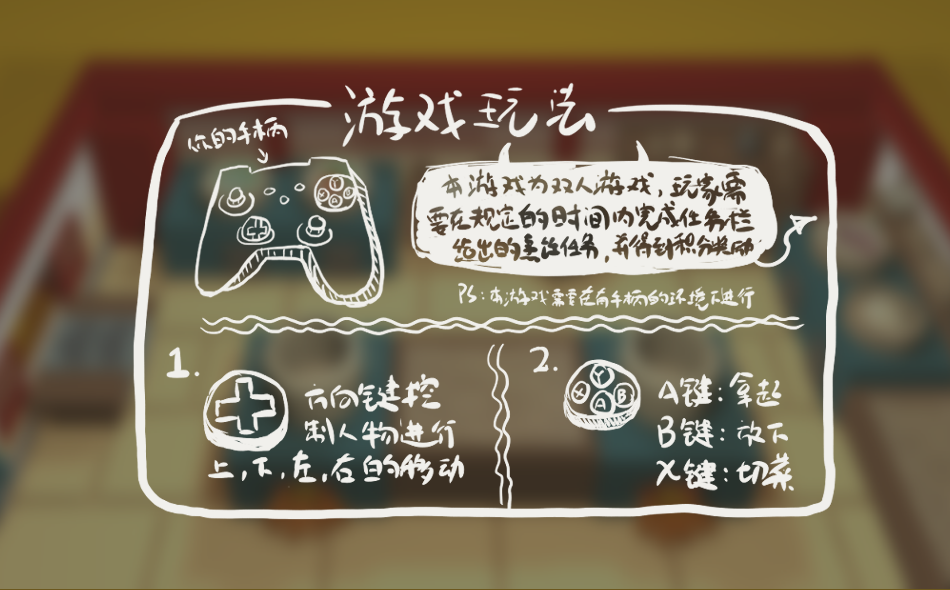 游戏玩法
你的手柄
本游戏为双人游戏，玩家需
要在规定的时间内完成任务栏
给出的烹饪任务，并得到积分奖励
PS：本游戏需要在有手柄的环境下进行
1.
方向键控
制人物进行
上，下，左，右的移动
2.
Y
X
B
A
A键：拿起
B键：放下
X键：切菜